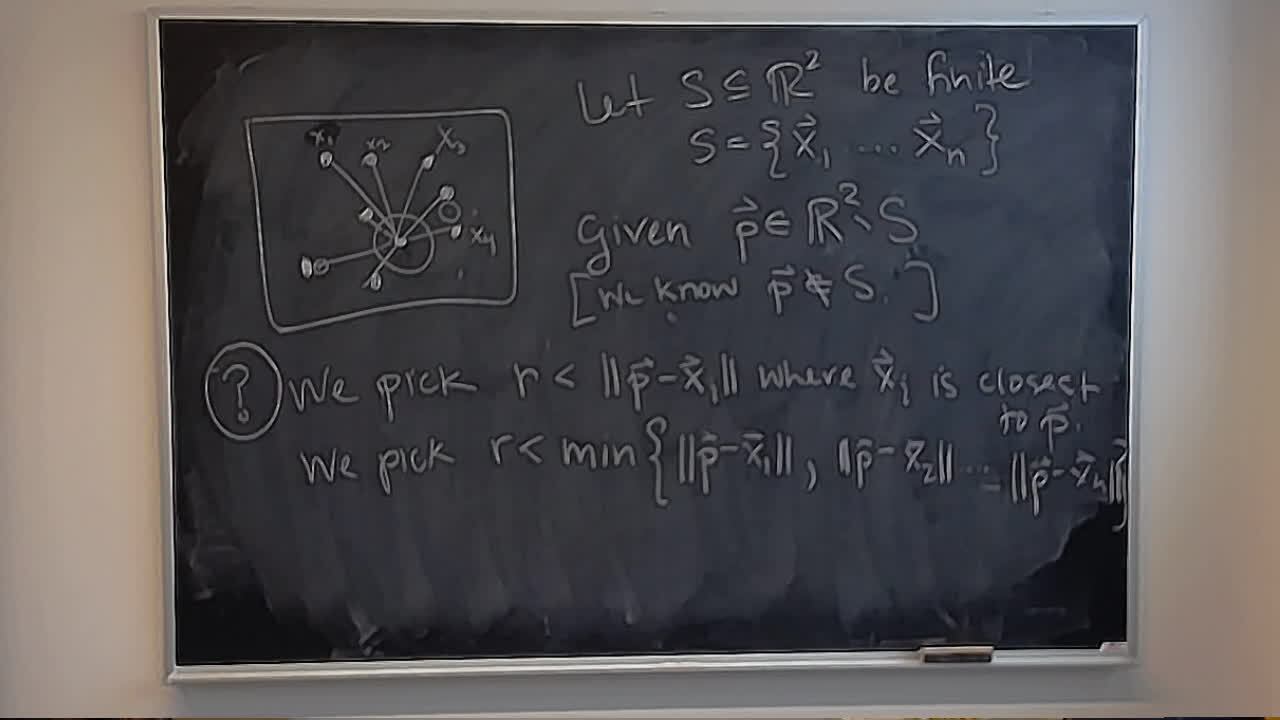 Let S ⊆ ℝ² be finite
S = {x⃗₁ ... x⃗ₙ}
x₁ x₂ x₃
Given p⃗ ∈ ℝ² \ S
x₄
[We know p⃗ ∉ S.]
? We pick r < ||p⃗ - x⃗ᵢ|| where x⃗ᵢ is closest
to p⃗.
We pick r < min {||p⃗ - x⃗₁||, ||p⃗ - x⃗₂|| ... ||p⃗ - x⃗ₙ||}